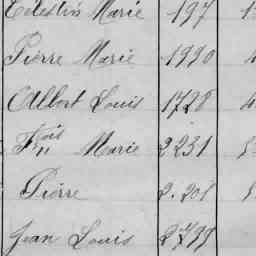 Célestin Marie 197 1
Pierre Marie 1990 4
Albert Louis 1728 4
Fçois Marie 2231 5
Pierre 2.201
Jean Louis 2799